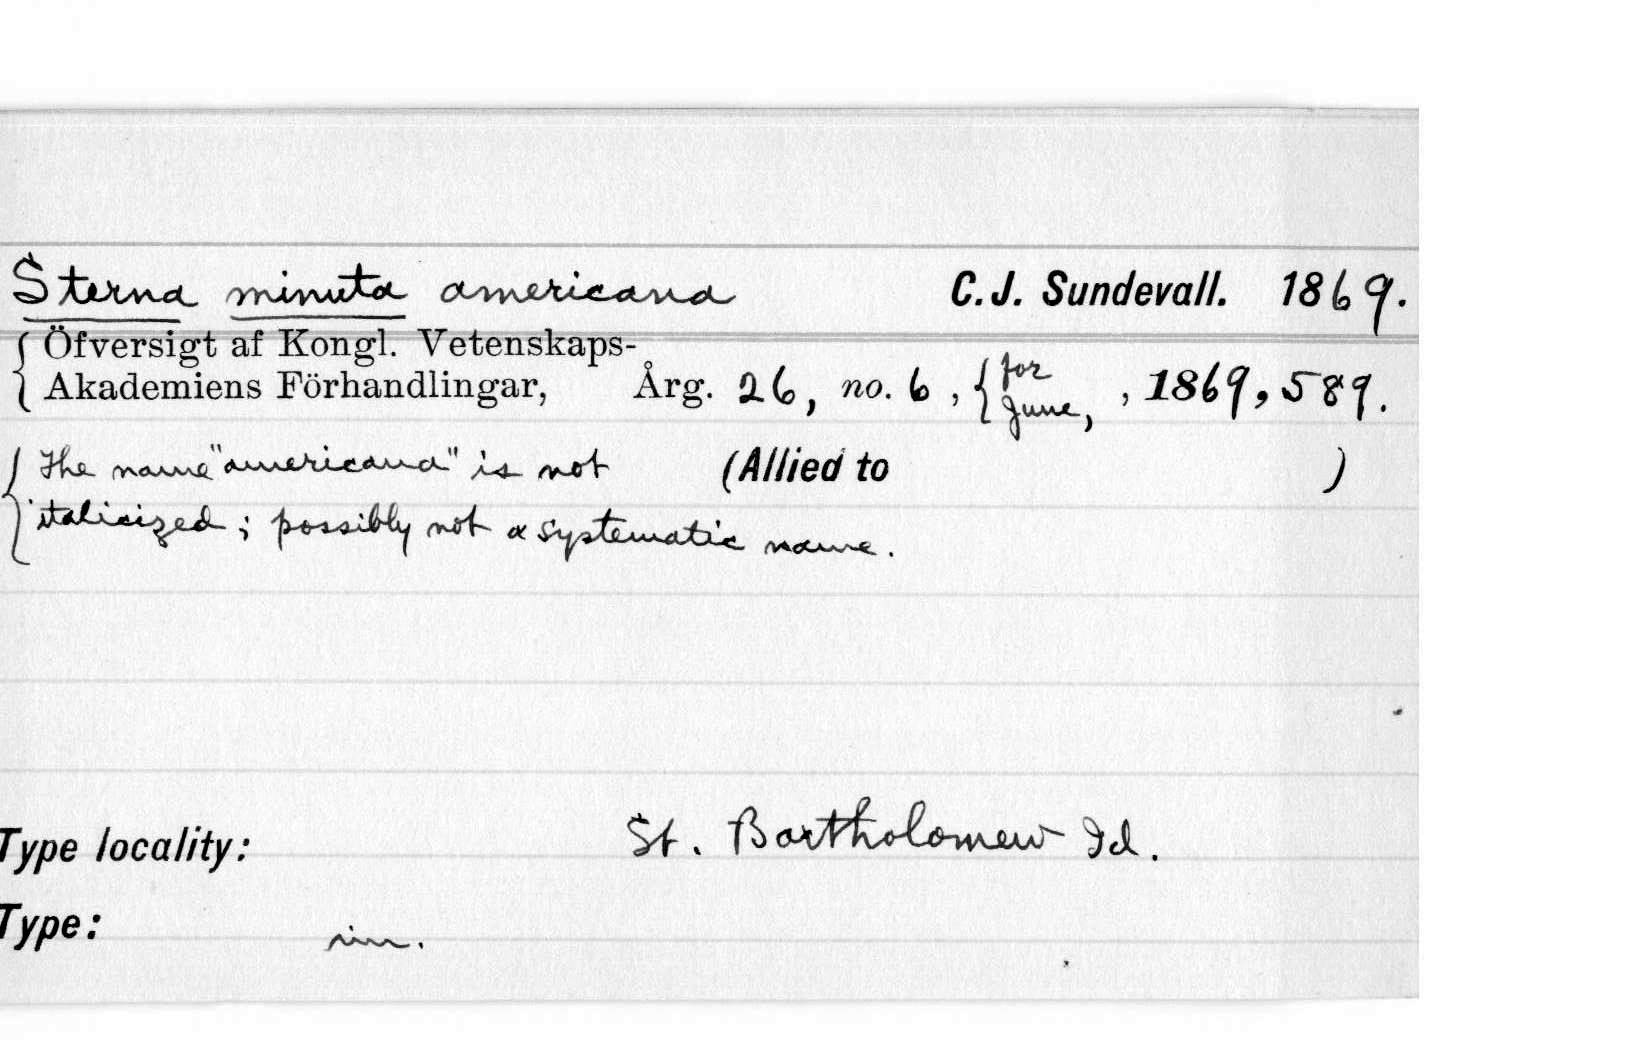 Sterna minuta americana C. J. Sundevall. 1869.
Öfversigt af Kongl. Vetenskaps-
Akademiens Förhandlingar, Årg. 26, no. 6, for June, , 1869, 589.
The name "americana" is not (Allied to )
italicized; possibly not a systematic name.
Type locality: St. Bartholomew Id.
Type: in.